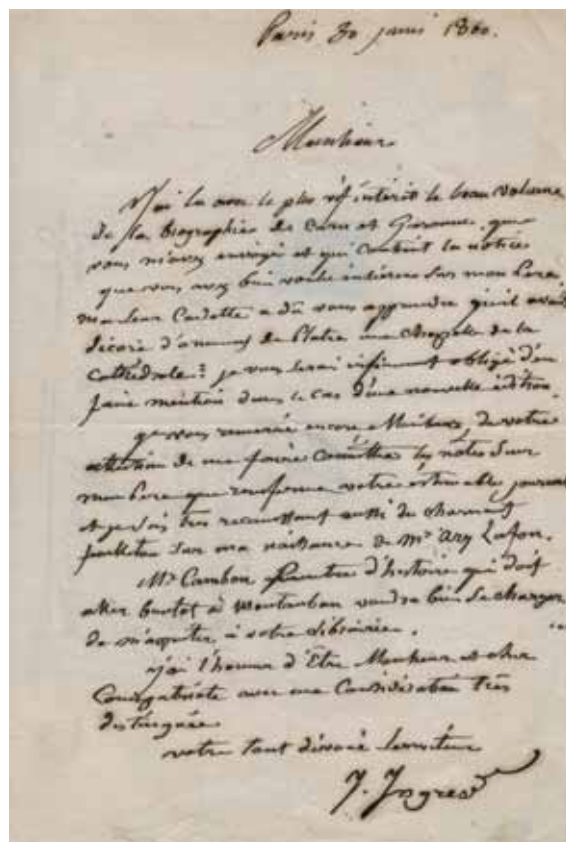 Paris 30 janvi 1860.
Monsieur
J'ai lu avec le plus vif interêt le beau volume
de la biographie de Tarn et Garonne, que
vous m'avez envoyé et qui contient la notice
que vous avez bien voulu insérer sur mon Pere.
ma Sœur Cadette a dû vous apprendre qu'il avait
décoré d'ornemens de Platre une chapelle de la
Cathédrale: je vous serai infiniment obligé d'en
faire mention dans le cas d'une nouvelle édition.
je vous remercie encore Monsieur, de votre
attention de me faire connaître les notes sur
mon Pere que renferme votre estimable journal
et je suis très reconnaissant aussi du charmant
feuilleton sur ma naissance de Mr Ary Lafon.
Mr Cambon Peintre d'histoire qui doit
aller bientot à Montauban voudra bien se charger
de m'aquiter à votre librairie.
j'ai l'honneur d'Etre Monsieur et cher
Compatriote avec une Considération très
distinguée
votre tout dévoué serviteur
J. Ingres